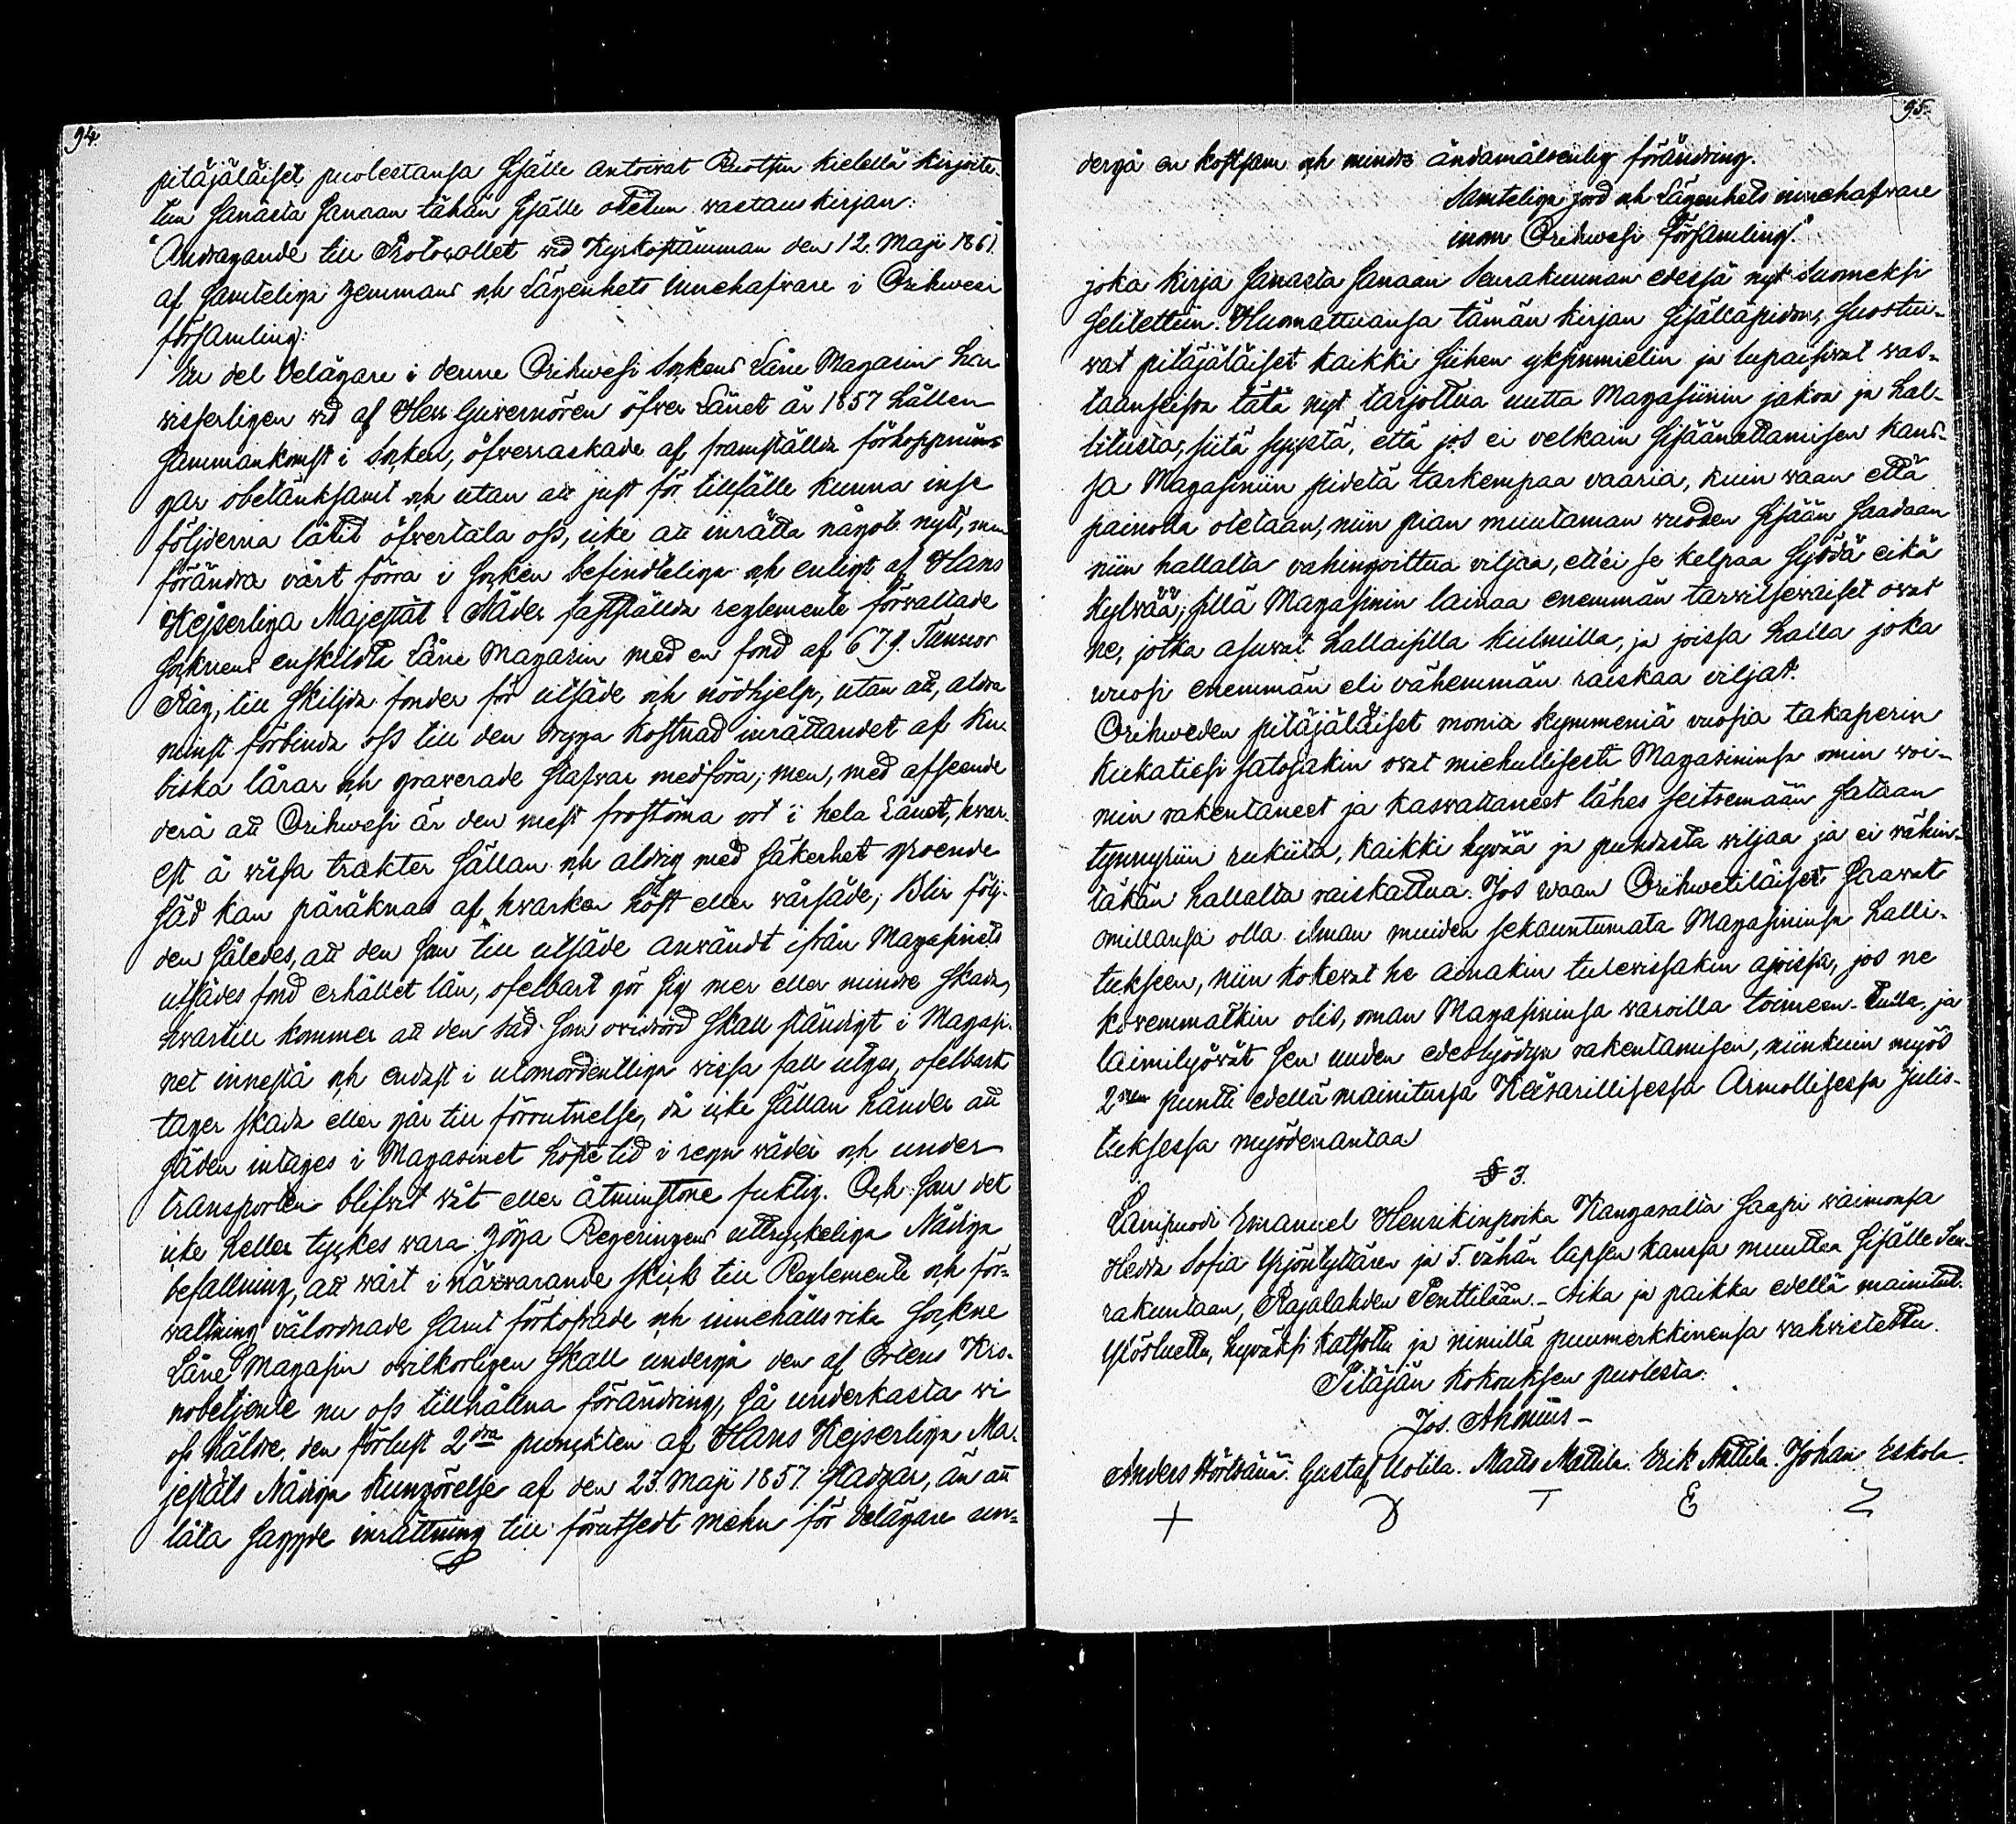 94.
pitäjäläiset puolestansa sisälle antoivat Ruotsin kielellä kirjoite-
tun sanasta sanaan tähän sisälle otetun vastaus kirjan:
"Andragande till Protocollet vid Kyrkostämman den 12. Maji 1861.
af samteliga Hemmans och Lägenhets innehafvare i Orihwesi
församling:
En del Delägare i denne Orihwesi Sockens Låne Magasin har
visserligen vid af Herr Guvernören öfver Länet år 1857 hållen
sammankomst i Socken, öfverraskade af framställda förhoppnin-
gar obetänksamt och utan att just för tillfälle kunna inse
följderna låtit öfvertala oss, icke att inrätta något nytt, men
förändra vårt förra i Socken befindteliga och enligt af Hans
Kejserliga Majestät i Nåder fastställda reglemente förvaltade
Socknens enskildta Låne Magasin med en fond af 679. Tunnor
Råg, till skiljda fonder för utsäde och nödhjelp, utan att, aldra
minst förbinda oss till den dryga kostnad inrättandet af Ku-
biska lårar och graverade stafvar medföra; men, med afseende
derå att Orihwesi är den mest frostöma ort i hela Länet, hvar-
est å vissa trakter sällan och aldrig med säkerhet groende
säd kan påräknas af hvarken höst eller vårsäde; Blir följ-
den således, att den som till utsäde användt ifrån Magasinets
utsädes fond erhållet lån, ofelbart gör sig mer eller mindre skada,
hvartill kommer att den säd som oundvördskall ständigt i Magasi-
net innestå och endast i utomordentliga vissa fall utgås, ofelbart
tager skada eller går till förrutnelse, då icke sällan händer att
säden intages i Magasinet höste tid i regn väder och under
transporten blifvit våt eller åtminstone fuktig. Och som det
icke heller tyckes vara Höga Regeringens uttryckeliga Nådiga
befallning, att vårt i närvarande skick till Reglemente och för-
valtning välordnade samt förkofrade och innehållsrika Sockne
Låne Magasin ovilkorligen skall undergå den af Ortens Kro-
nobetjente nu oss tillhållna förändring, så underkasta vi
oss häldre den förlust 2dra puncten af Hans Kejserliga Ma-
jestäts Nådiga Kungörelse af den 23. Maji 1857. stadgar, än att
låta sagde inrättning till förutsedt mehn för Delägare un-
95.
dergå en kostsam och mindre ändamålsenlig förändring.
Samteliga jord och Lägenhets innehafvare
inom Orihwesi Församling."
joka kirja sanasta sanaan Seurakunnan edessä nyt Suomeksi
selitettiin. Huomattuansa tämän kirjan sisälläpidon, suostui-
vat pitäjäläiset kaikki siihen yksimielin ja lupaisivat vas-
taanseisoa tätä nyt tarjottua uutta Magasiinin jakoa ja hal-
litusta, siitä syystä, että jos ei velkain sisäänottamisen kans-
sa Magasiniin pidetä tarkempaa vaaria, kuin vaan että
painolla otetaan, niin pian muutaman vuoden sisään saadaan
niin hallalta vahingoittua viljaa, ett'ei se kelpaa syödä eikä
kylvää; sillä Magasinin lainaa enemmän tarvitsevaiset ovat
ne, jotka asuvat hallaisilla kulmilla, ja joissa halla joka
vuosi enemmän eli vähemmän raiskaa viljat.
Orihweden pitäjäläiset monia kymmeniä vuosia takaperin
kukatiesi satojakin ovat miehullisesti Magasininsa omin voi-
min rakentaneet ja kasvattaneet lähes seitsemään sataan
tynnyriin rukiita, kaikki hyvää ja puhdasta viljaa ja ei vähin-
täkän hallalta raiskattua. Jos vaan Orihwetiläiset saavat
omillansa olla ilman muiden sekauntumata Magasininsa halli-
tukseen, niin kokevat he ainakin tulevissakin ajoissa, jos ne
kovemmatkin olis, oman Magasininsa varoilla toimeen tulla, ja
laimilyövät sen uuden edeslyödyn rakentamisen, niinkuin myös
2nen puntti edellä mainitussa Keisarillisessa Armollisessa Julis-
tuksessa myödenantaa.
§ 3.
Lampuodi Emanuel Henrikinpoika Kangasalta saapi vaimonsa
Hedda Sofia Yrjöntytären ja 5. vähän lapsen kanssa muuttaa sisälle Seu-
rakuntaan, Rajalahden Penttilään. - Aika ja paikka edellä mainitut.
Ylösluettu, hyväksi katsottu ja nimillä puumerkkinensa vahvistettu.
Pitäjän kokouksen puolesta:
Jos. Ahonius -
Anders Hörtsänä. Gustaf Uotila. Matts Mattila. Erik Anttila. Johan Eskola.